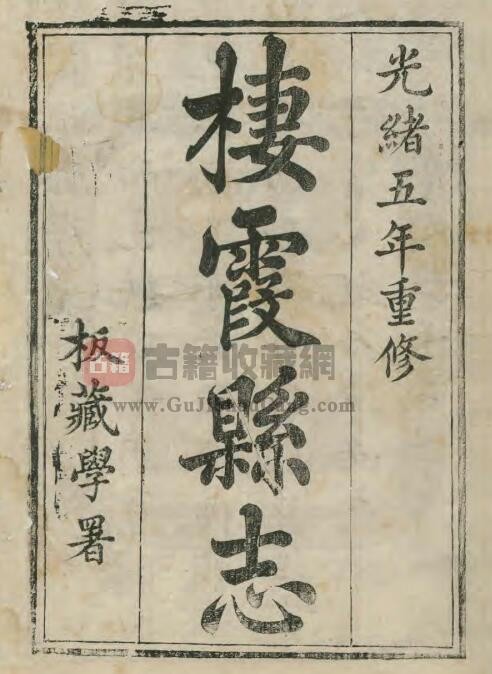 光緒五年重修
棲霞縣志
板藏學署
古籍
古籍收藏網